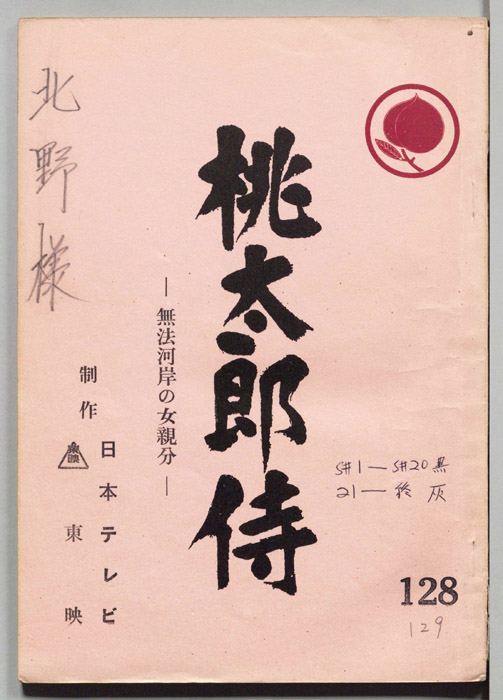 北野様
桃太郎侍
―無法河岸の女親分―
制作
日本テレビ
東映
S#1 ― S#20 黒
21 ― 終 灰
128
129